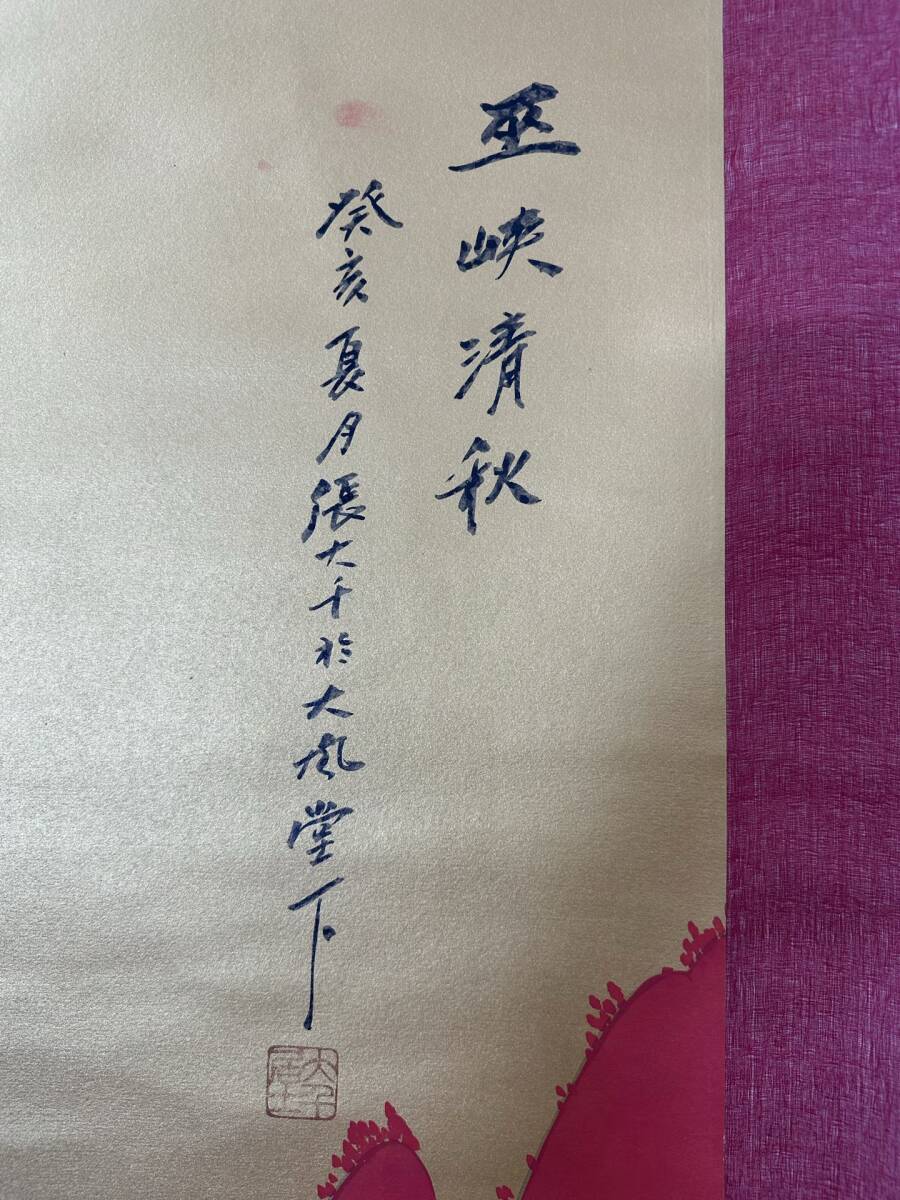 巫峽清秋
癸亥夏月張大千於大風堂下
大千居士